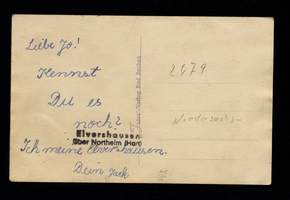 Liebe Jo!
Kennst
Du es
noch?
Elvershausen
über Northeim (Han)
Ich meine Elvershausen.
Dein Jack
2479
Niedersachsen